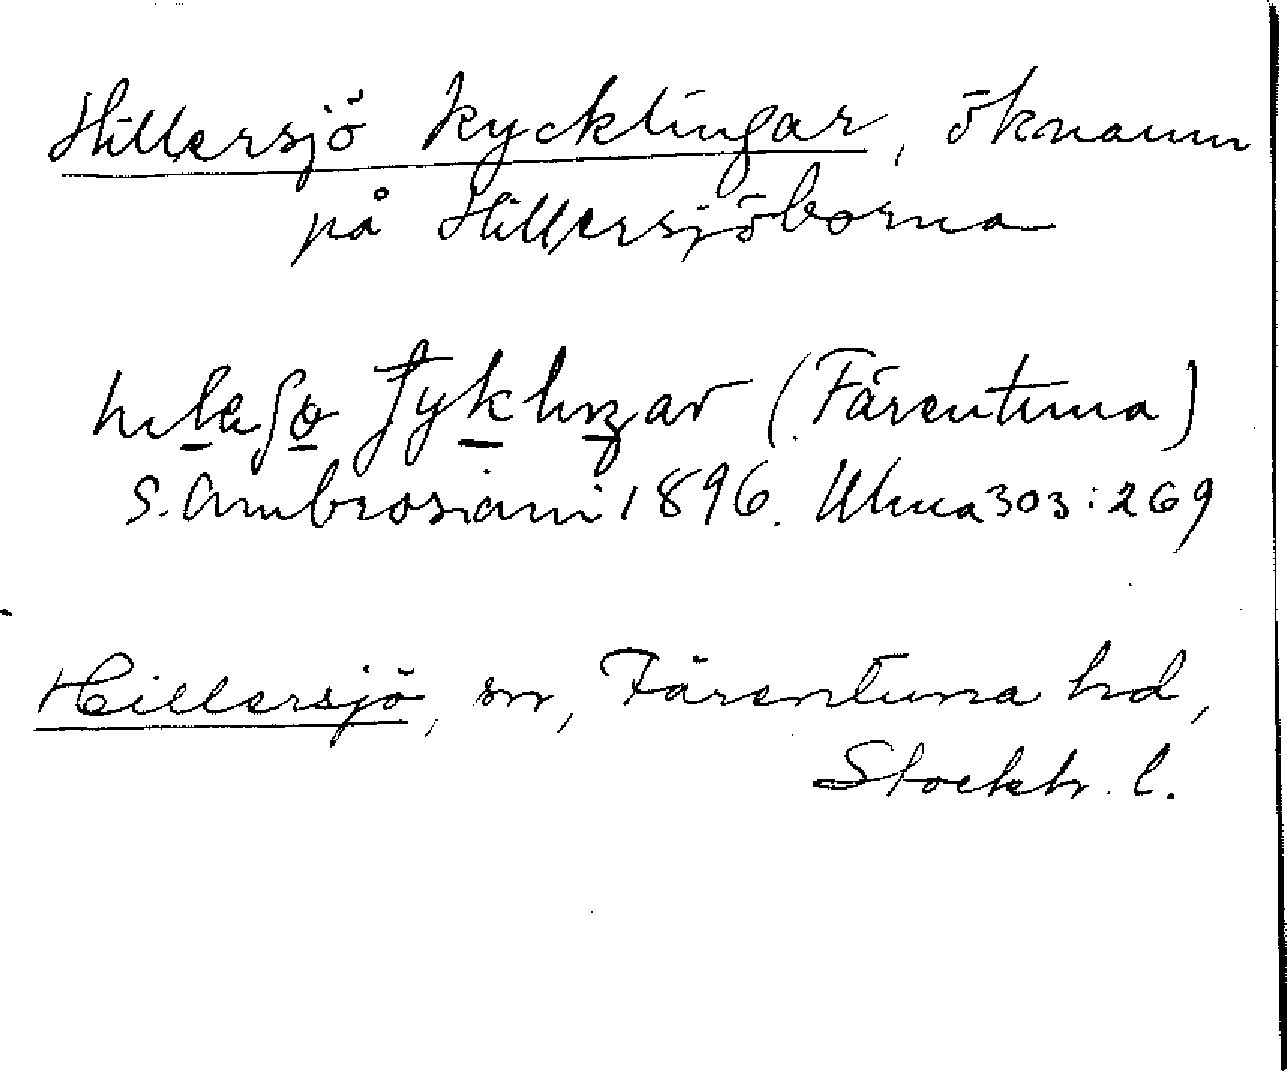 Hillersjö kycklingar, öknamn
på Hillersjöborna
(Färentuna)
S. Ambrosiani 1896. Ulma 303:269
Hillersjö, sn, Färentuna hd,
Stockh. l.